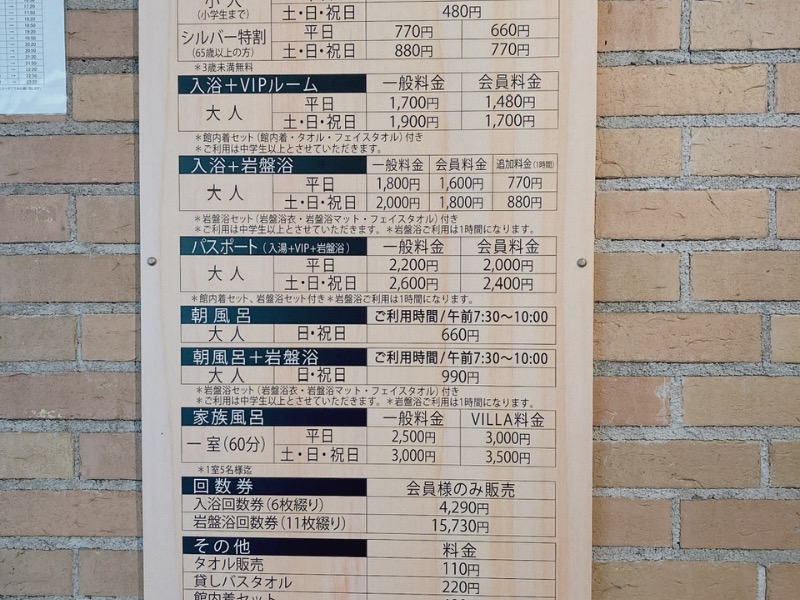 小人
(小学生まで)
土・日・祝日 480円
シルバー特割 平日 770円 660円
(65歳以上の方) 土・日・祝日 880円 770円
*3歳未満無料
入浴+VIPルーム 一般料金 会員料金
大人 平日 1,700円 1,480円
土・日・祝日 1,900円 1,700円
*館内着セット(館内着・タオル・フェイスタオル)付き
*ご利用は中学生以上とさせていただきます。
入浴+岩盤浴 一般料金 会員料金 追加料金(1時間)
大人 平日 1,800円 1,600円 770円
土・日・祝日 2,000円 1,800円 880円
*岩盤浴セット(岩盤浴衣・岩盤浴マット・フェイスタオル)付き
*ご利用は中学生以上とさせていただきます。*岩盤浴ご利用は1時間になります。
パスポート(入湯+VIP+岩盤浴) 一般料金 会員料金
大人 平日 2,200円 2,000円
土・日・祝日 2,600円 2,400円
*館内着セット、岩盤浴セット付き*岩盤浴ご利用は1時間になります。
朝風呂 ご利用時間/午前7:30〜10:00
大人 日・祝日 660円
朝風呂+岩盤浴 ご利用時間/午前7:30〜10:00
大人 日・祝日 990円
*岩盤浴セット(岩盤浴衣・岩盤浴マット・フェイスタオル)付き
*ご利用は中学生以上とさせていただきます。*岩盤浴ご利用は1時間になります。
家族風呂 一般料金 VILLA料金
一室(60分) 平日 2,500円 3,000円
土・日・祝日 3,000円 3,500円
*1室5名様迄
回数券 会員様のみ販売
入浴回数券(6枚綴り) 4,290円
岩盤浴回数券(11枚綴り) 15,730円
その他 料金
タオル販売 110円
貸しバスタオル 220円
館内着セット